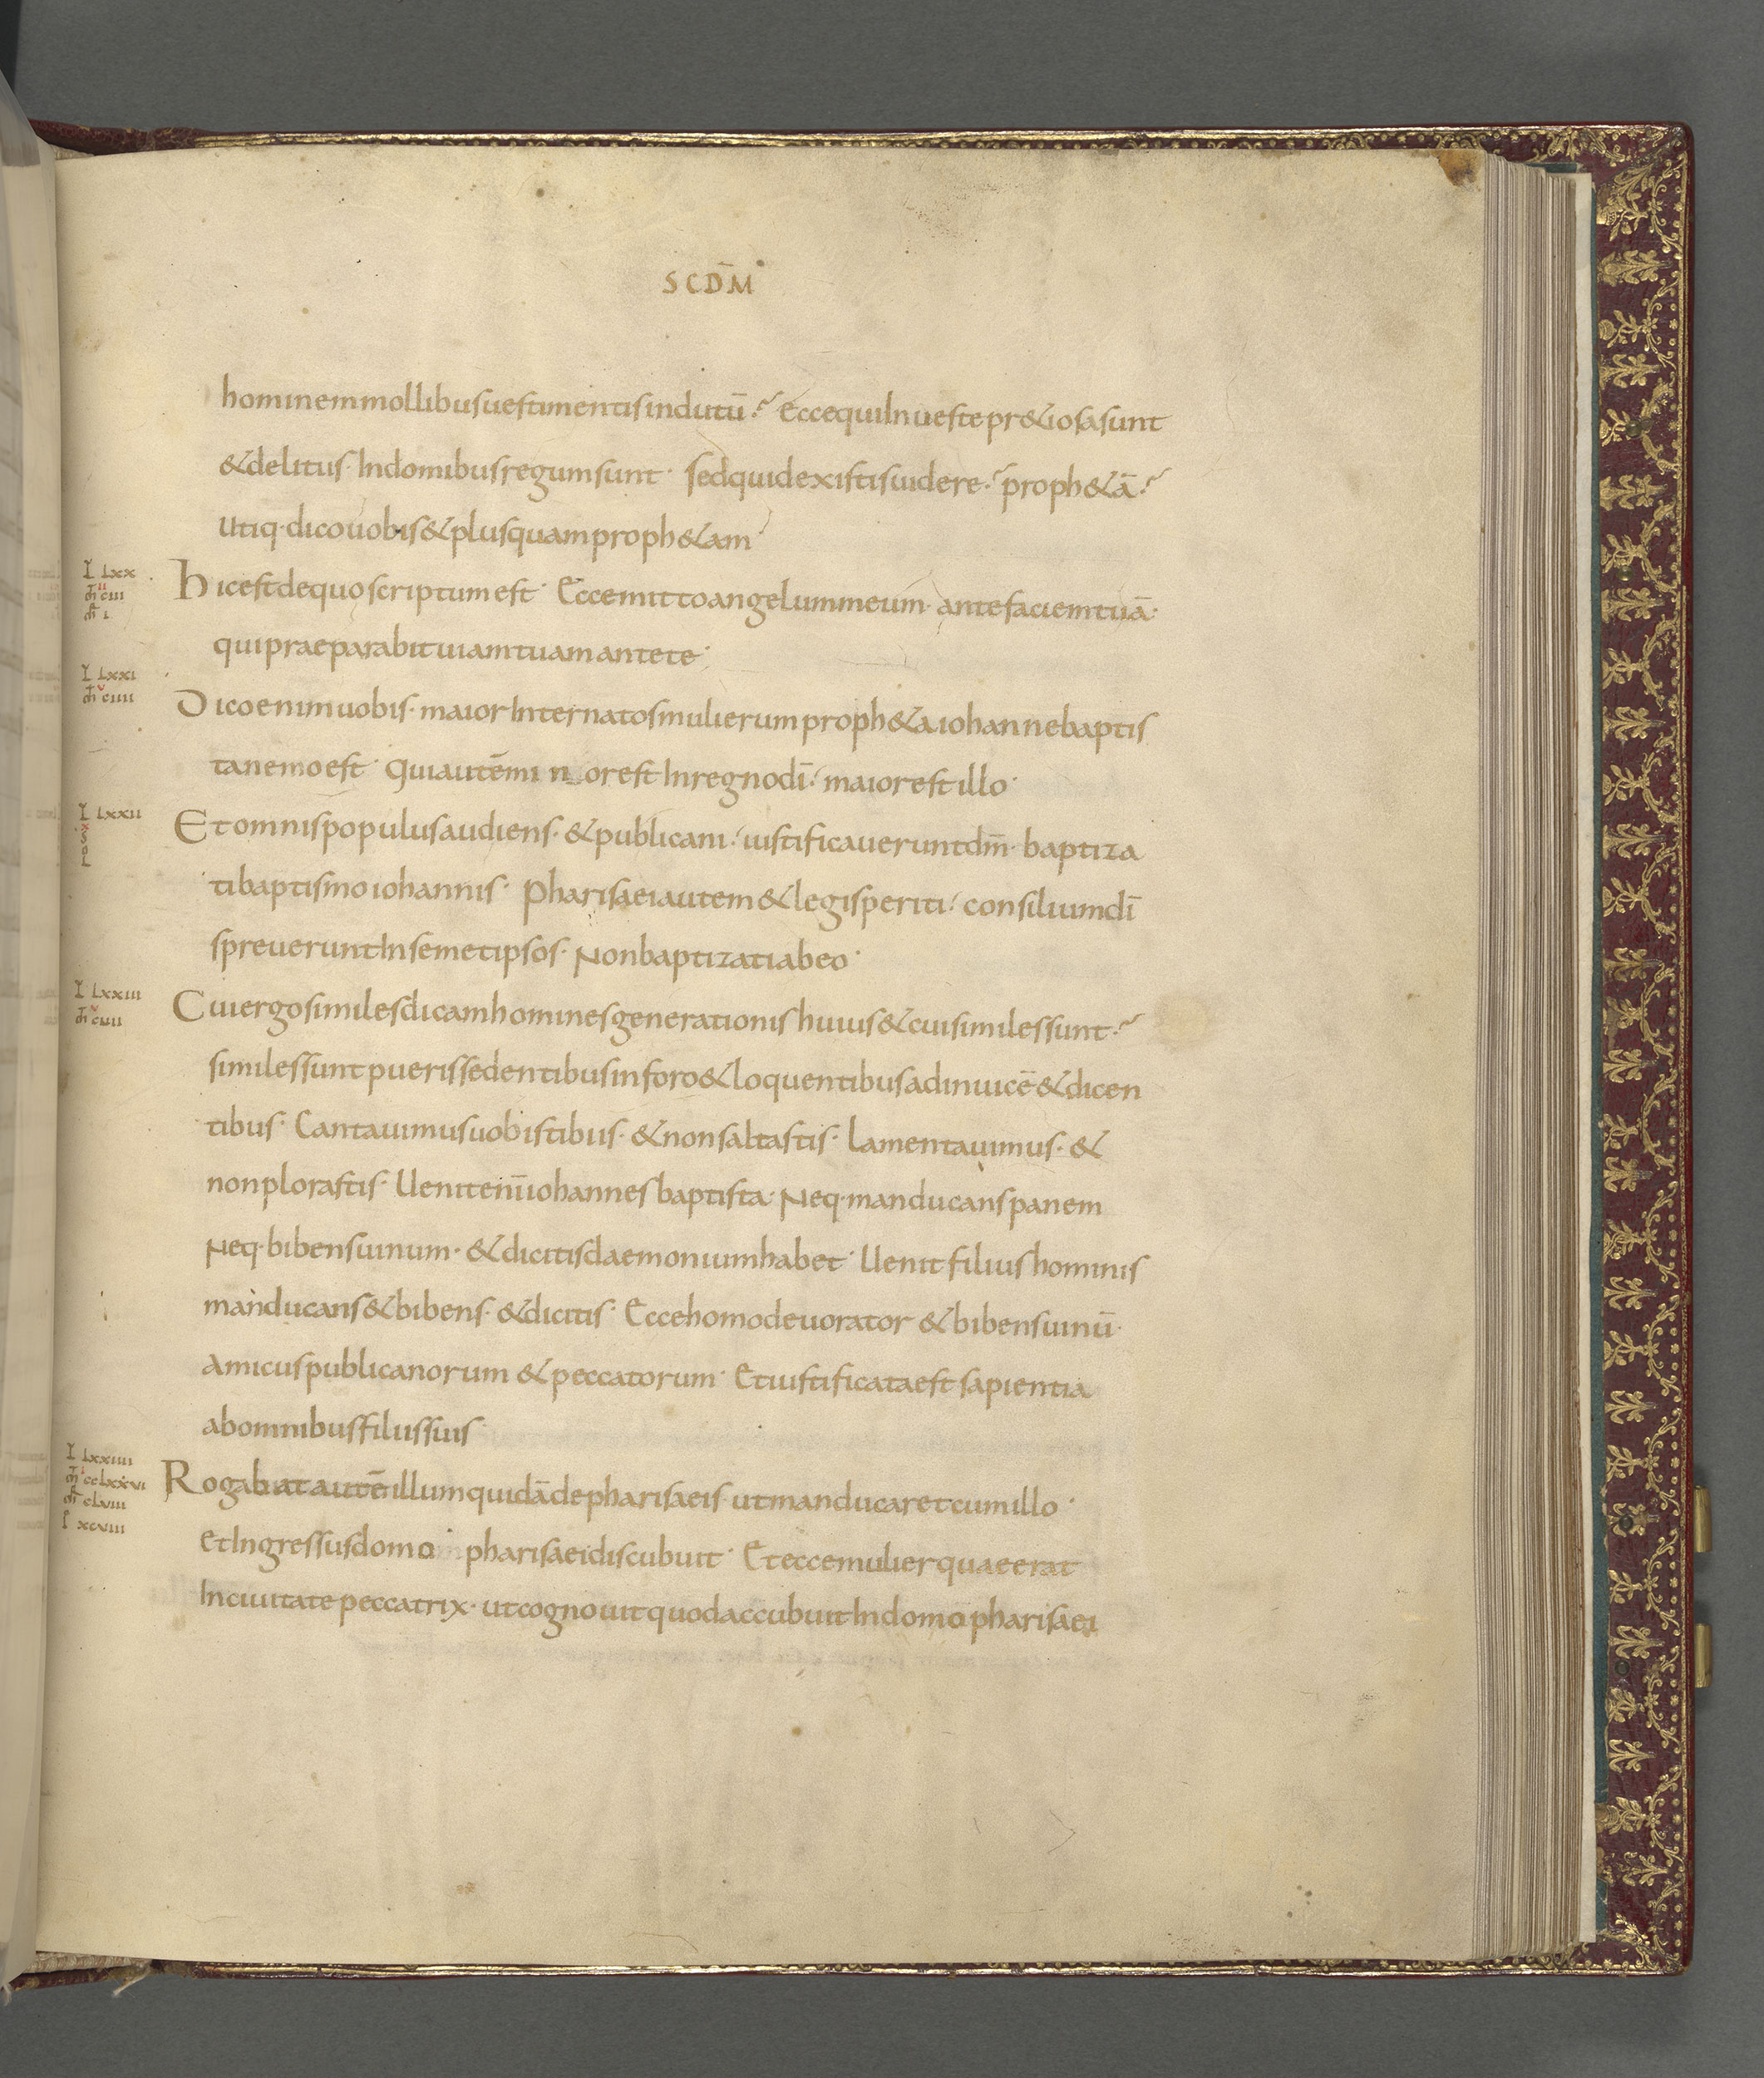 SCDM̄
hominemmollibusuestimentisindutū. EccequiInuestepr&iosasunt
&delitiis· Indomibusregumsunt· sedquidexistisuidere. proph&ā.
Utiq·dicouobis&plusquamproph&am
I LXX
m̄ ciii
m̄ i
Hicestdequoscriptumest· Eccemittoangelummeum· antefaciemtuā·
quipraeparabituiamtuamantete·
I LXXI
m̄ ciiii
Dicoenimuobis· maiorInternatosmulierumproph&aiohannebaptis
tanemoest· Quiautēminorest Inregnodī· maiorestillo·
I LXXII
x
S
o
L
Etomnispopulusaudiens· &publicani· iustificaueruntdm̄· baptiza
tibaptismoiohannis· Pharisaeiautem&legisperiti· consiliumdī
spreueruntInsemetipsos· Nonbaptizatiabeo·
I LXXIII
m̄ cuii
Cuiergosimilesdicamhominesgenerationishuius&cuisimilessunt·
similessuntpuerissedentibusinforo&loquentibusadinuicē&dicen
tibus· Cantauimusuobistibiis· &nonsaltastis· Lamentauimus· &
nonplorastis· Uenitenīiohannesbaptista· Neq·manducanspanem
Neq·bibensuinum· &dicitisdaemoniumhabet· Uenitfiliushominis
manducans&bibens· &dicitis· Eccehomodeuorator &bibensuinū·
Amicuspublicanorum &peccatorum· Etiustificataestsapientia
abomnibusfiliissuis
I LXXIIII
m̄ ccLXXVI
m̄ cLuiii
I xcuiii
Rogabatautēillumquidādepharisaeis· utmanducaretcumillo·
EtIngressusdomo pharisaeidiscubuit· Eteccemulierquaeerat
Inciuitatepeccatrix· utcognouitquodaccubuitIndomopharisaei